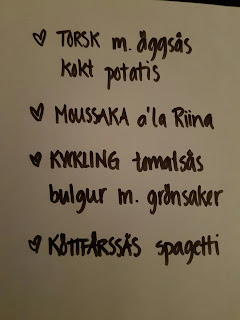 TORSK m. äggsås
kokt potatis
MOUSSAKA a'la Riina
KYCKLING tomatsås
bulgur m. grönsaker
KÖTTFÄRSSÅS spagetti